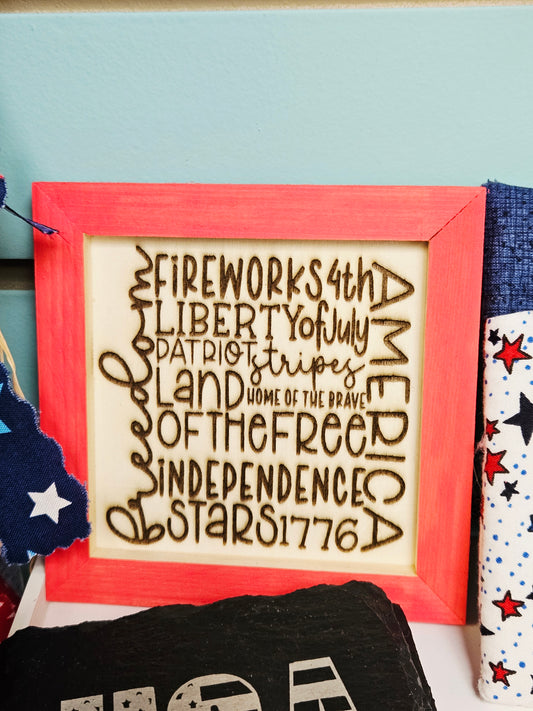 freedom
FIREWORKS 4th
LIBERTY of July
PATRIOT stripes
LAND HOME OF THE BRAVE
OF THE FREE
INDEPENDENCE
STARS 1776
AMERICA
USA